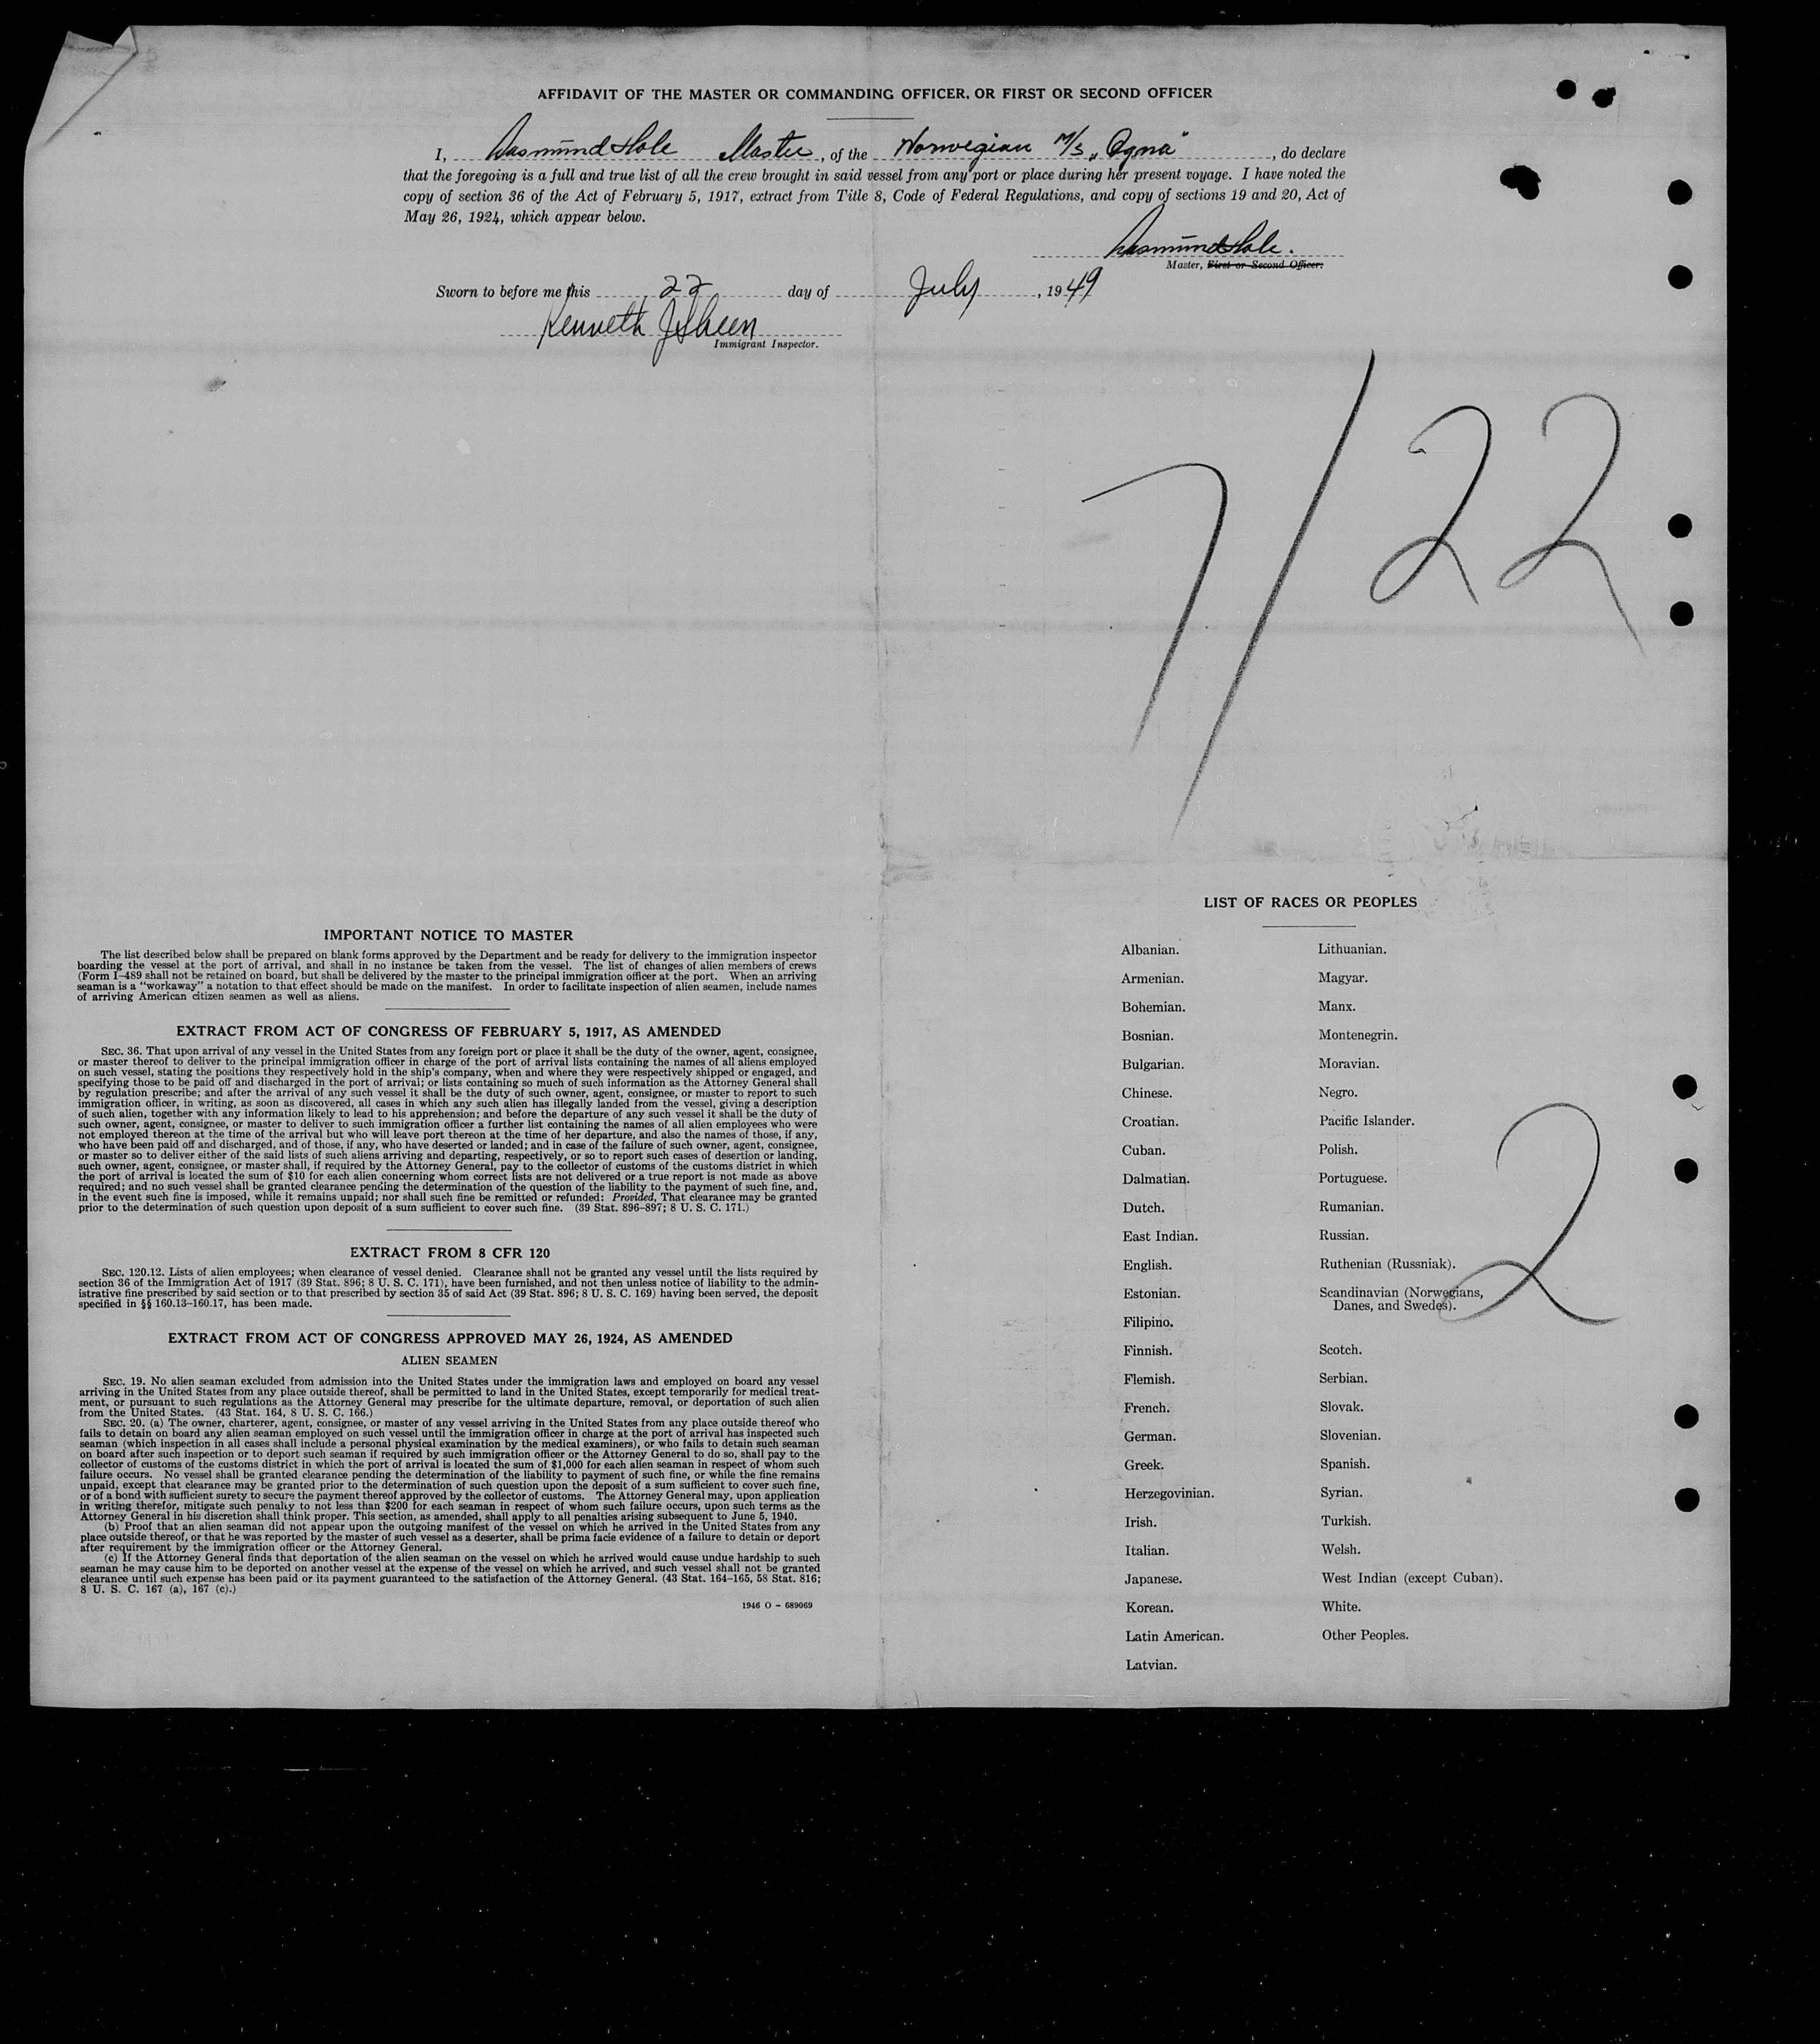 AFFIDAVIT OF THE MASTER OR COMMANDING OFFICER, OR FIRST OR SECOND OFFICER
I, Aasmund Hole Master, of the Norwegian M/S „Ogna", do declare
that the foregoing is a full and true list of all the crew brought in said vessel from any port or place during her present voyage. I have noted the
copy of section 36 of the Act of February 5, 1917, extract from Title 8, Code of Federal Regulations, and copy of sections 19 and 20, Act of
May 26, 1924, which appear below.
Aasmund Hole.
Master, First or Second Officer.
Sworn to before me this 22 day of July, 1949
Kenneth J
Immigrant Inspector.
7/22
IMPORTANT NOTICE TO MASTER
The list described below shall be prepared on blank forms approved by the Department and be ready for delivery to the immigration inspector
boarding the vessel at the port of arrival, and shall in no instance be taken from the vessel. The list of changes of alien members of crews
(Form I-489 shall not be retained on board, but shall be delivered by the master to the principal immigration officer at the port. When an arriving
seaman is a “workaway” a notation to that effect should be made on the manifest. In order to facilitate inspection of alien seamen, include names
of arriving American citizen seamen as well as aliens.
EXTRACT FROM ACT OF CONGRESS OF FEBRUARY 5, 1917, AS AMENDED
SEC. 36. That upon arrival of any vessel in the United States from any foreign port or place it shall be the duty of the owner, agent, consignee,
or master thereof to deliver to the principal immigration officer in charge of the port of arrival lists containing the names of all aliens employed
on such vessel, stating the positions they respectively hold in the ship's company, when and where they were respectively shipped or engaged, and
specifying those to be paid off and discharged in the port of arrival; or lists containing so much of such information as the Attorney General shall
by regulation prescribe; and after the arrival of any such vessel it shall be the duty of such owner, agent, consignee, or master to report to such
immigration officer, in writing, as soon as discovered, all cases in which any such alien has illegally landed from the vessel, giving a description
of such alien, together with any information likely to lead to his apprehension; and before the departure of any such vessel it shall be the duty of
such owner, agent, consignee, or master to deliver to such immigration officer a further list containing the names of all alien employees who were
not employed thereon at the time of the arrival but who will leave port thereon at the time of her departure, and also the names of those, if any,
who have been paid off and discharged, and of those, if any, who have deserted or landed; and in case of the failure of such owner, agent, consignee,
or master so to deliver either of the said lists of such aliens arriving and departing, respectively, or so to report such cases of desertion or landing,
such owner, agent, consignee, or master shall, if required by the Attorney General, pay to the collector of customs of the customs district in which
the port of arrival is located the sum of $10 for each alien concerning whom correct lists are not delivered or a true report is not made as above
required; and no such vessel shall be granted clearance pending the determination of the question of the liability to the payment of such fine, and,
in the event such fine is imposed, while it remains unpaid; nor shall such fine be remitted or refunded: Provided, That clearance may be granted
prior to the determination of such question upon deposit of a sum sufficient to cover such fine. (39 Stat. 896-897; 8 U. S. C. 171.)
EXTRACT FROM 8 CFR 120
SEC. 120.12. Lists of alien employees; when clearance of vessel denied. Clearance shall not be granted any vessel until the lists required by
section 36 of the Immigration Act of 1917 (39 Stat. 896; 8 U. S. C. 171), have been furnished, and not then unless notice of liability to the admin-
istrative fine prescribed by said section or to that prescribed by section 35 of said Act (39 Stat. 896; 8 U. S. C. 169) having been served, the deposit
specified in §§ 160.13-160.17, has been made.
EXTRACT FROM ACT OF CONGRESS APPROVED MAY 26, 1924, AS AMENDED
ALIEN SEAMEN
SEC. 19. No alien seaman excluded from admission into the United States under the immigration laws and employed on board any vessel
arriving in the United States from any place outside thereof, shall be permitted to land in the United States, except temporarily for medical treat-
ment, or pursuant to such regulations as the Attorney General may prescribe for the ultimate departure, removal, or deportation of such alien
from the United States. (43 Stat. 164, 8 U. S. C. 166.)
SEC. 20. (a) The owner, charterer, agent, consignee, or master of any vessel arriving in the United States from any place outside thereof who
fails to detain on board any alien seaman employed on such vessel until the immigration officer in charge at the port of arrival has inspected such
seaman (which inspection in all cases shall include a personal physical examination by the medical examiners), or who fails to detain such seaman
on board after such inspection or to deport such seaman if required by such immigration officer or the Attorney General to do so, shall pay to the
collector of customs of the customs district in which the port of arrival is located the sum of $1,000 for each alien seaman in respect of whom such
failure occurs. No vessel shall be granted clearance pending the determination of the liability to payment of such fine, or while the fine remains
unpaid, except that clearance may be granted prior to the determination of such question upon the deposit of a sum sufficient to cover such fine,
or of a bond with sufficient surety to secure the payment thereof approved by the collector of customs. The Attorney General may, upon application
in writing therefor, mitigate such penalty to not less than $200 for each seaman in respect of whom such failure occurs, upon such terms as the
Attorney General in his discretion shall think proper. This section, as amended, shall apply to all penalties arising subsequent to June 5, 1940.
(b) Proof that an alien seaman did not appear upon the outgoing manifest of the vessel on which he arrived in the United States from any
place outside thereof, or that he was reported by the master of such vessel as a deserter, shall be prima facie evidence of a failure to detain or deport
after requirement by the immigration officer or the Attorney General.
(c) If the Attorney General finds that deportation of the alien seaman on the vessel on which he arrived would cause undue hardship to such
seaman he may cause him to be deported on another vessel at the expense of the vessel on which he arrived, and such vessel shall not be granted
clearance until such expense has been paid or its payment guaranteed to the satisfaction of the Attorney General. (43 Stat. 164-165, 58 Stat. 816;
8 U. S. C. 167 (a), 167 (c).)
1946 O - 689069
LIST OF RACES OR PEOPLES
Albanian.
Armenian.
Bohemian.
Bosnian.
Bulgarian.
Chinese.
Croatian.
Cuban.
Dalmatian.
Dutch.
East Indian.
English.
Estonian.
Filipino.
Finnish.
Flemish.
French.
German.
Greek.
Herzegovinian.
Irish.
Italian.
Japanese.
Korean.
Latin American.
Latvian.
Lithuanian.
Magyar.
Manx.
Montenegrin.
Moravian.
Negro.
Pacific Islander.
Polish.
Portuguese.
Rumanian.
Russian.
Ruthenian (Russniak).
Scandinavian (Norwegians,
Danes, and Swedes).
Scotch.
Serbian.
Slovak.
Slovenian.
Spanish.
Syrian.
Turkish.
Welsh.
West Indian (except Cuban).
White.
Other Peoples.
2